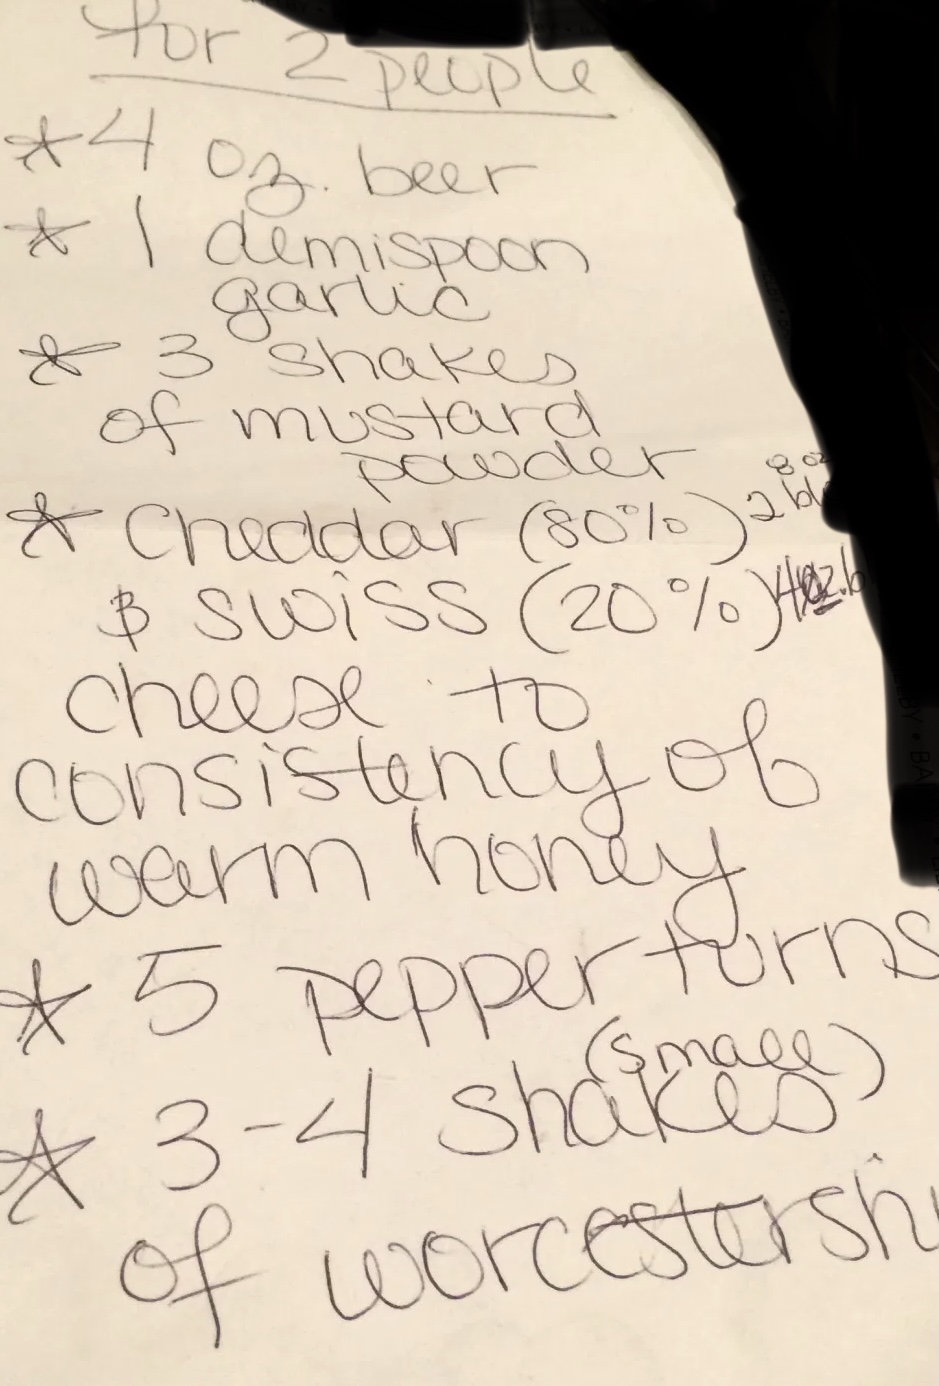 for 2 people
* 4 oz. beer
* 1 demispoon
garlic
* 3 shakes
of mustard
powder
* Cheddar (80%) 2 8 oz
& swiss (20%) 4 oz.
cheese to
consistency of
warm honey
* 5 pepper turns
* 3-4 (small) shakes
of worcestershi